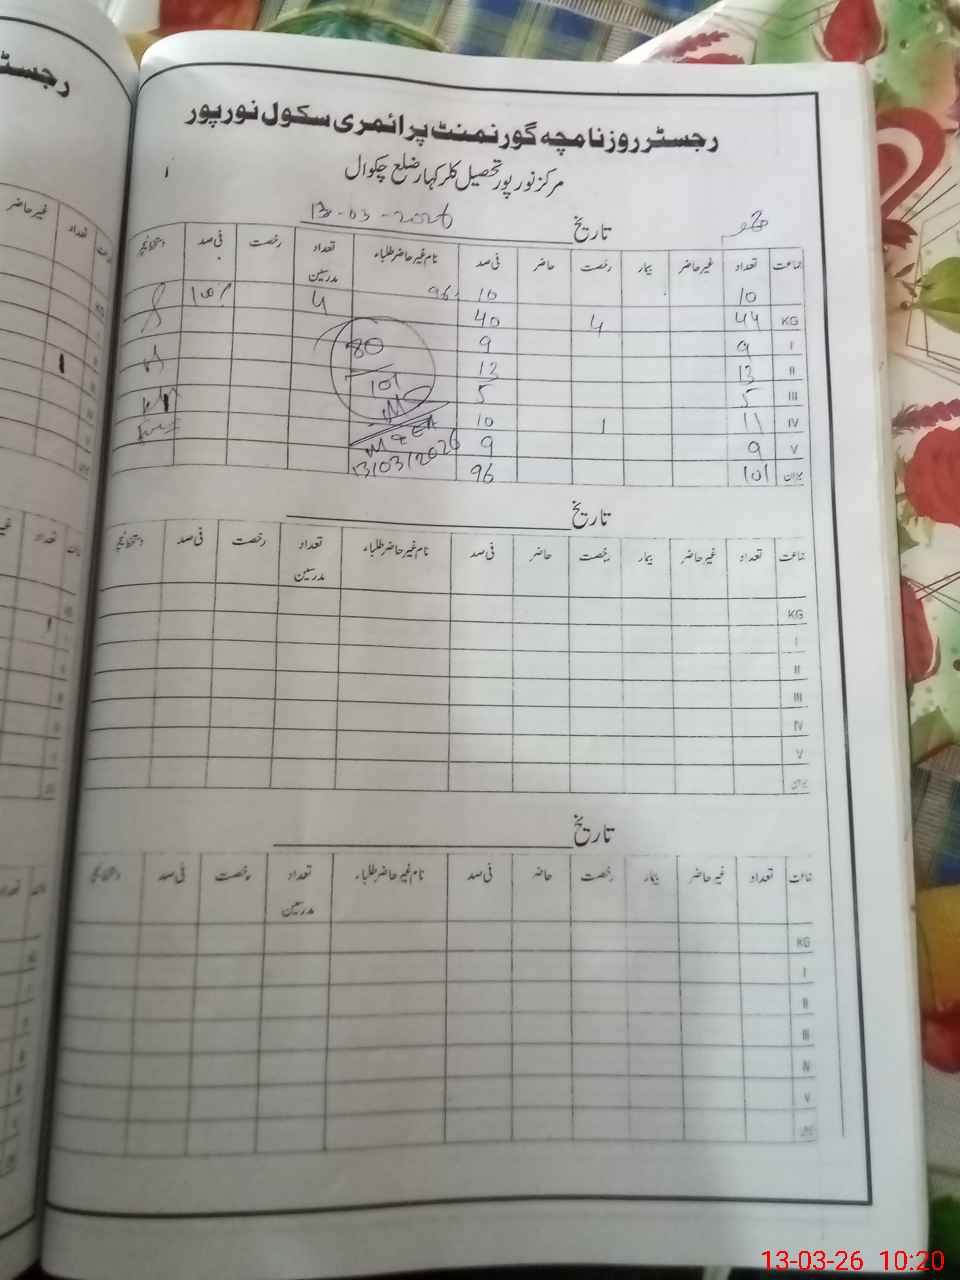 رجسٹر روزنامچہ گورنمنٹ پرائمری سکول نورپور
مرکز نورپور تحصیل کلرکہار ضلع چکوال
تاریخ 13-03-2026
جماعت تعداد غیر حاضر بیمار رخصت حاضر فی صد نام غیر حاضر طلباء تعداد مدرسین رخصت فی صد دستخط ٹیچر
10 10 96 4 100%
KG 44 4 40
I 9 9
II 13 13
III 5 5
IV 11 1 10
V 9 9
میزان 101 96
80
101
M & EA
13/03/2026
تاریخ
جماعت تعداد غیر حاضر بیمار رخصت حاضر فی صد نام غیر حاضر طلباء تعداد مدرسین رخصت فی صد دستخط ٹیچر
KG
I
II
III
IV
V
میزان
تاریخ
جماعت تعداد غیر حاضر بیمار رخصت حاضر فی صد نام غیر حاضر طلباء تعداد مدرسین رخصت فی صد دستخط ٹیچر
KG
I
II
III
IV
V
میزان
13-03-26 10:20